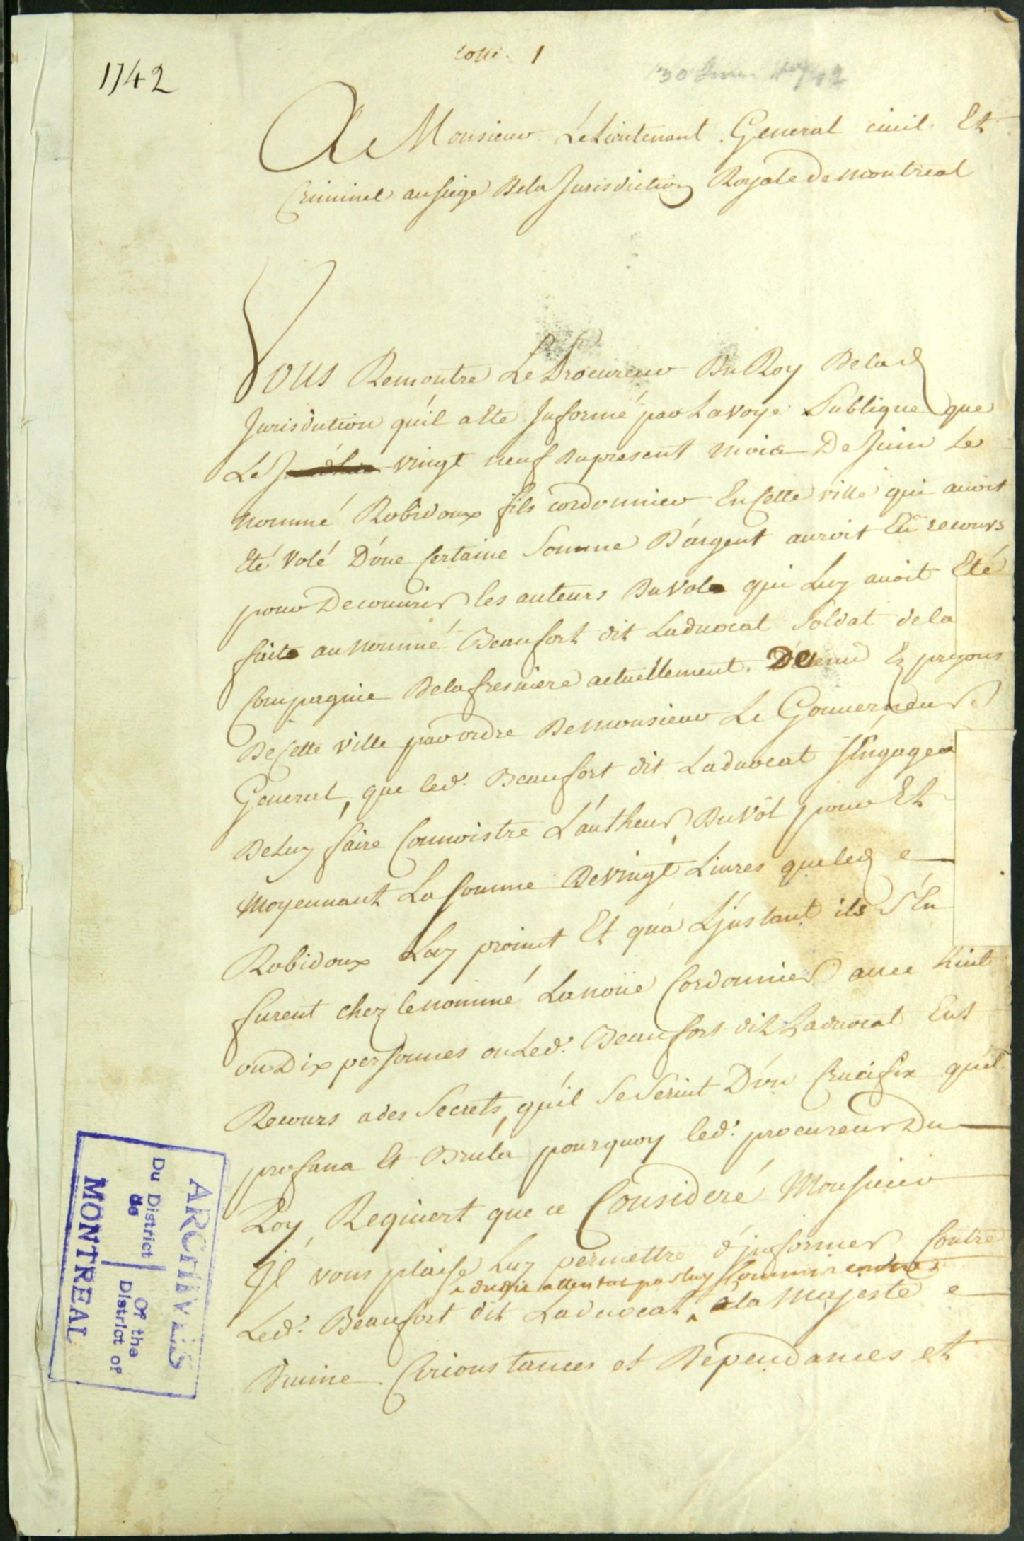 1742
cotté. 1
30 Juin 1742
A Monsieur Le Lieutenant General civil Et
Criminel au siege De la Jurisdiction Royale de montreal
Vous Remontre Le Procureur Du Roy De lad
Jurisdiction qu'il a Eté Informé par La voye Publique que
Le J vingt neuf Du present mois De Juin Le
nommé Robidoux fils cordonnier En Cette ville qui auoit
Eté Volé D'une Certaine Somme D'argent auroit Eü recours
pour Decouurir les auteurs Du Vol qui Luy auoit Eté
fait au nommé Beaufort dit Laduocat Soldat de la
Compagnie De lafresniere actuellement Detenu Es prisons
De Cette ville par ordre De monsieur Le Gouuerneur
General, que led. Beaufort dit Laduocat s'Engagea
De Luy faire Connoistre L'autheur Du Vol pour Et
Moyennant La somme De vingt Liures que led
Robidoux Luy promit Et qu'a L'instant ils S'En
furent chez le nommé Lanoüe Cordonnier auec huit
ou Dix personnes ou Led. Beaufort dit Laduocat Eut
Recours a des Secrets, qu'il Se Seruit D'un Crucifix qu'il
profana Et Brula pourquoy led. procureur Du
Roy Requiert que ce Consideré Monsieur
Il vous plaise Luy permettre d'informer Contre
Led. Beaufort dit Laduocat, a la Majesté
Diuine Circonstances et Dependances et
ARCHIVES
Du District | Of the
de | District of
MONTREAL